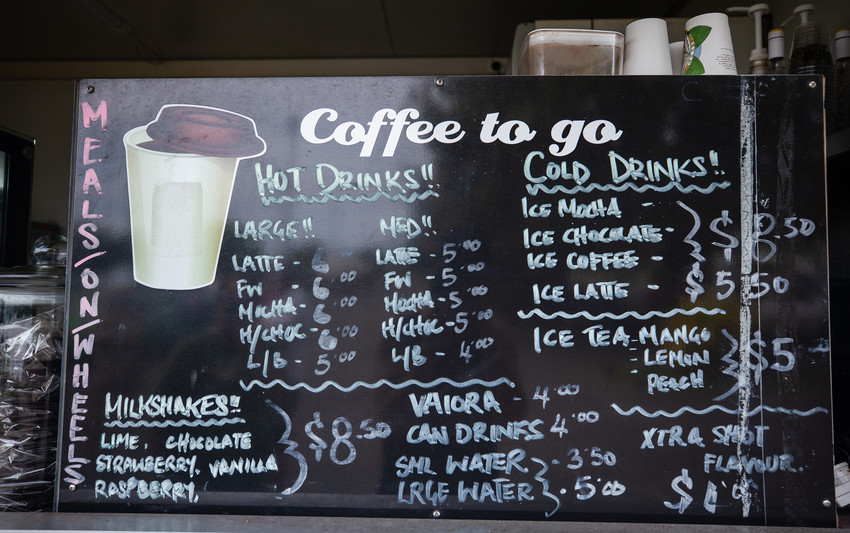 MEALS/ON/WHEELS
Coffee to go
HOT DRINKS!!
LARGE!!
LATTE - 6.00
FW - 6.00
MOCHA - 6.00
H/CHOC - 6.00
L/B - 5.00
MED!!
LATTE - 5.00
FW - 5.00
MOCHA - 5.00
H/CHOC - 5.00
L/B - 4.00
COLD DRINKS!!
ICE MOCHA -
ICE CHOCOLATE -
ICE COFFEE -
$8.50
ICE LATTE - $5.50
ICE TEA - MANGO
- LEMON
- PEACH
$5
MILKSHAKES!!
LIME, CHOCOLATE
STRAWBERRY, VANILLA
RASPBERRY,
$8.50
VAIORA - 4.00
CAN DRINKS 4.00
SML WATER - 3.50
LRGE WATER - 5.00
XTRA SHOT
FLAVOUR.